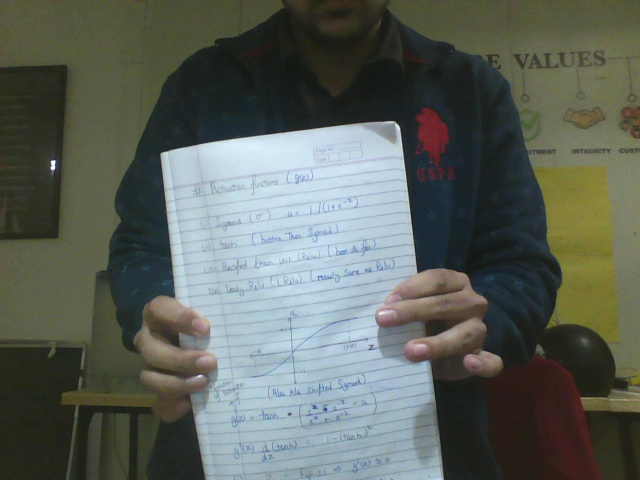 E VALUES
USPA
ITMENT INTEGRITY CUSTO
Page No.
Date
# Activation functions (g(z))
(i) Sigmoid (σ) a = 1/(1+e^-z)
(ii) tanh (better than Sigmoid)
(iii) Rectified linear unit (Relu) (best so far)
(iv) Leaky Relu (LRelu) (mostly same as Relu)
a
z
(Also k/a shifted Sigmoid)
g(z) = tanh = (e^z - e^-z / e^z + e^-z = a)
g'(z) d/dz (tanh) = 1-(tanh)^2
z = high(+) ⇒ g'(z) ≈ 0